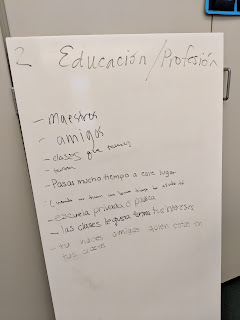 2 Educación/Profesión
- Maestros
- amigos
- clases que
- Pasas mucho tiempo a este lugar
- escuela privada o publica
- las clases te gusta forma tus intereses
- tu haces amigos quien estan en
tus clases